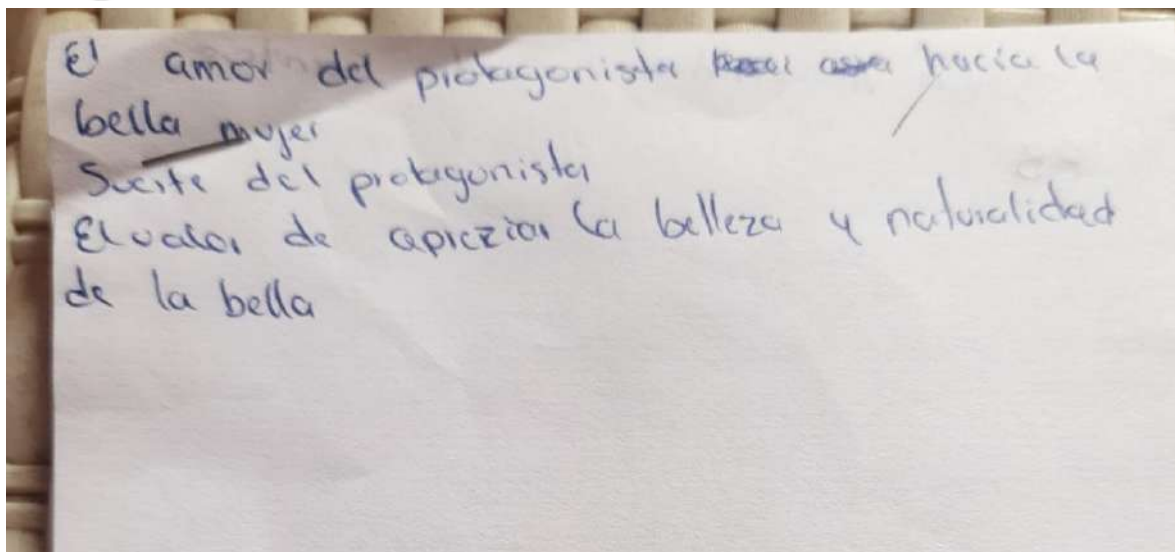 El amor del protagonista hacia la
bella mujer
Suerte del protagonista
El valor de apreziar la belleza y naturalidad
de la bella